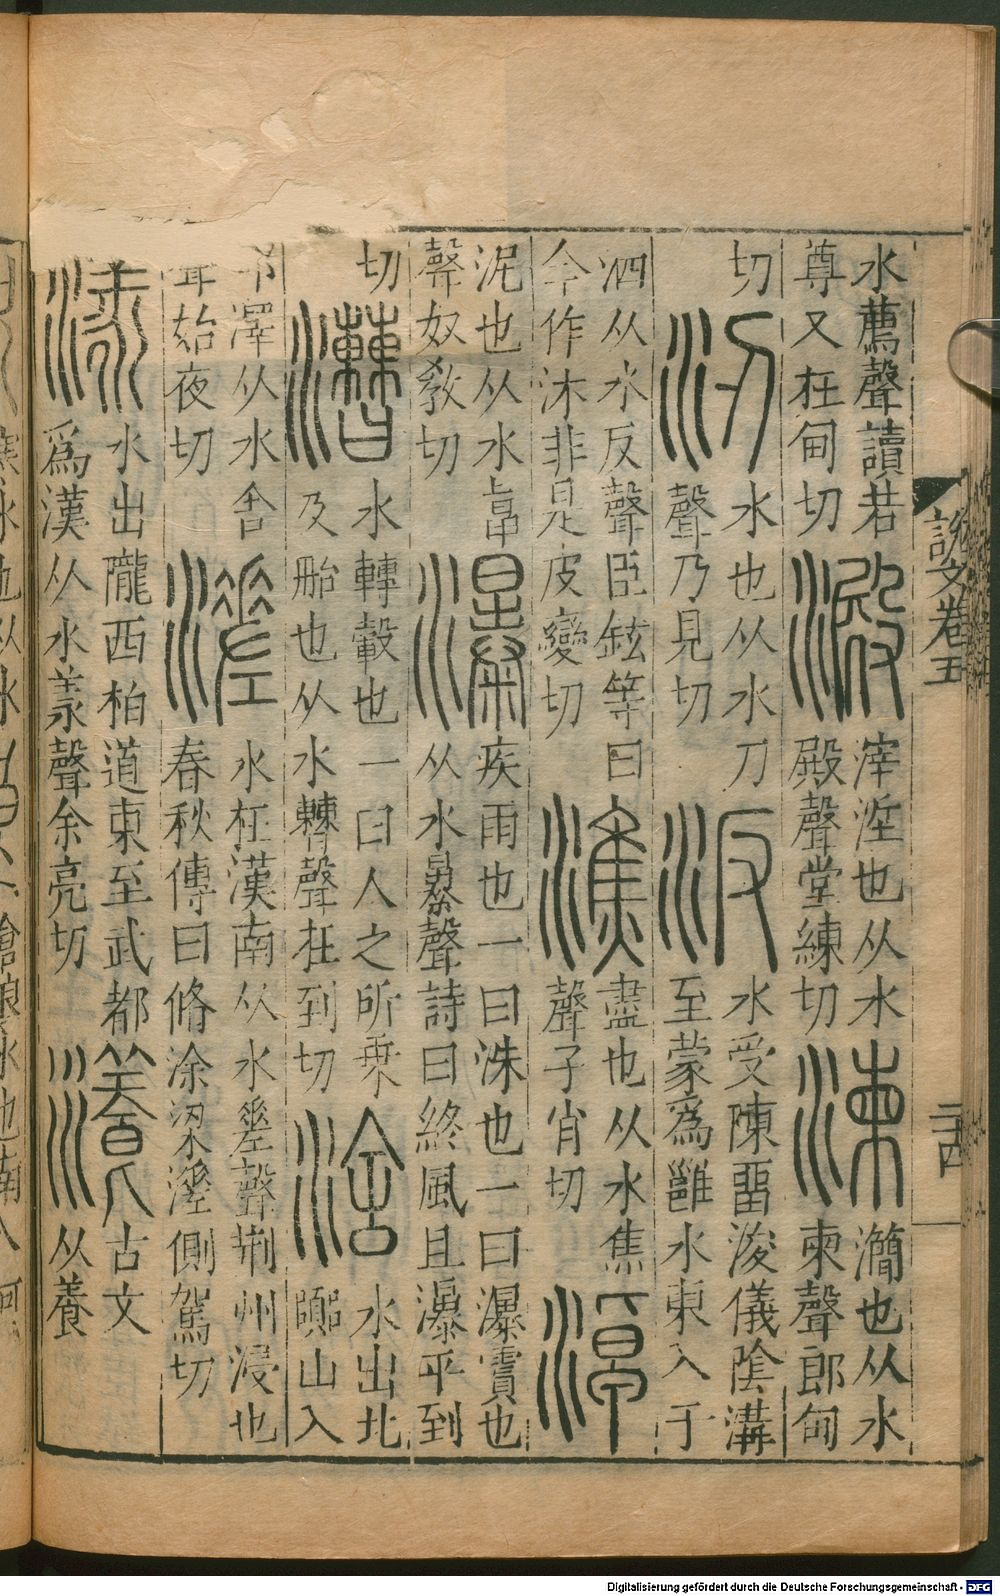 水薦聲讀若
尊又在甸切
澱
滓也从水
殿聲堂練切
湅
㶕也从水
柬聲郎甸
切
汈
水也从水刀
聲乃見切
汳
水受陳畱浚儀陰溝
至蒙爲雝水東入于
泗从水反聲臣鉉等曰
今作汴非是皮變切
潐
盡也从水焦
聲子肖切
淖
泥也从水卓
聲奴敎切
瀑
疾雨也一曰沫也一曰瀑霣也
从水㬥聲詩曰終風且瀑平到
切
漕
水轉轂也一曰人之所乗
及船也从水聲在到切
涻
水出北
囂山入
邙澤从水舍
聲始夜切
溠
水在漢南从水差聲荆州浸也
春秋傳曰脩涂梁溠側駕切
漾
水出隴西柏道東至武都
爲漢从水羕聲余亮切
瀁
古文
从養
說文卷五
二十四
Digitalisierung gefördert durch die Deutsche Forschungsgemeinschaft - DFG